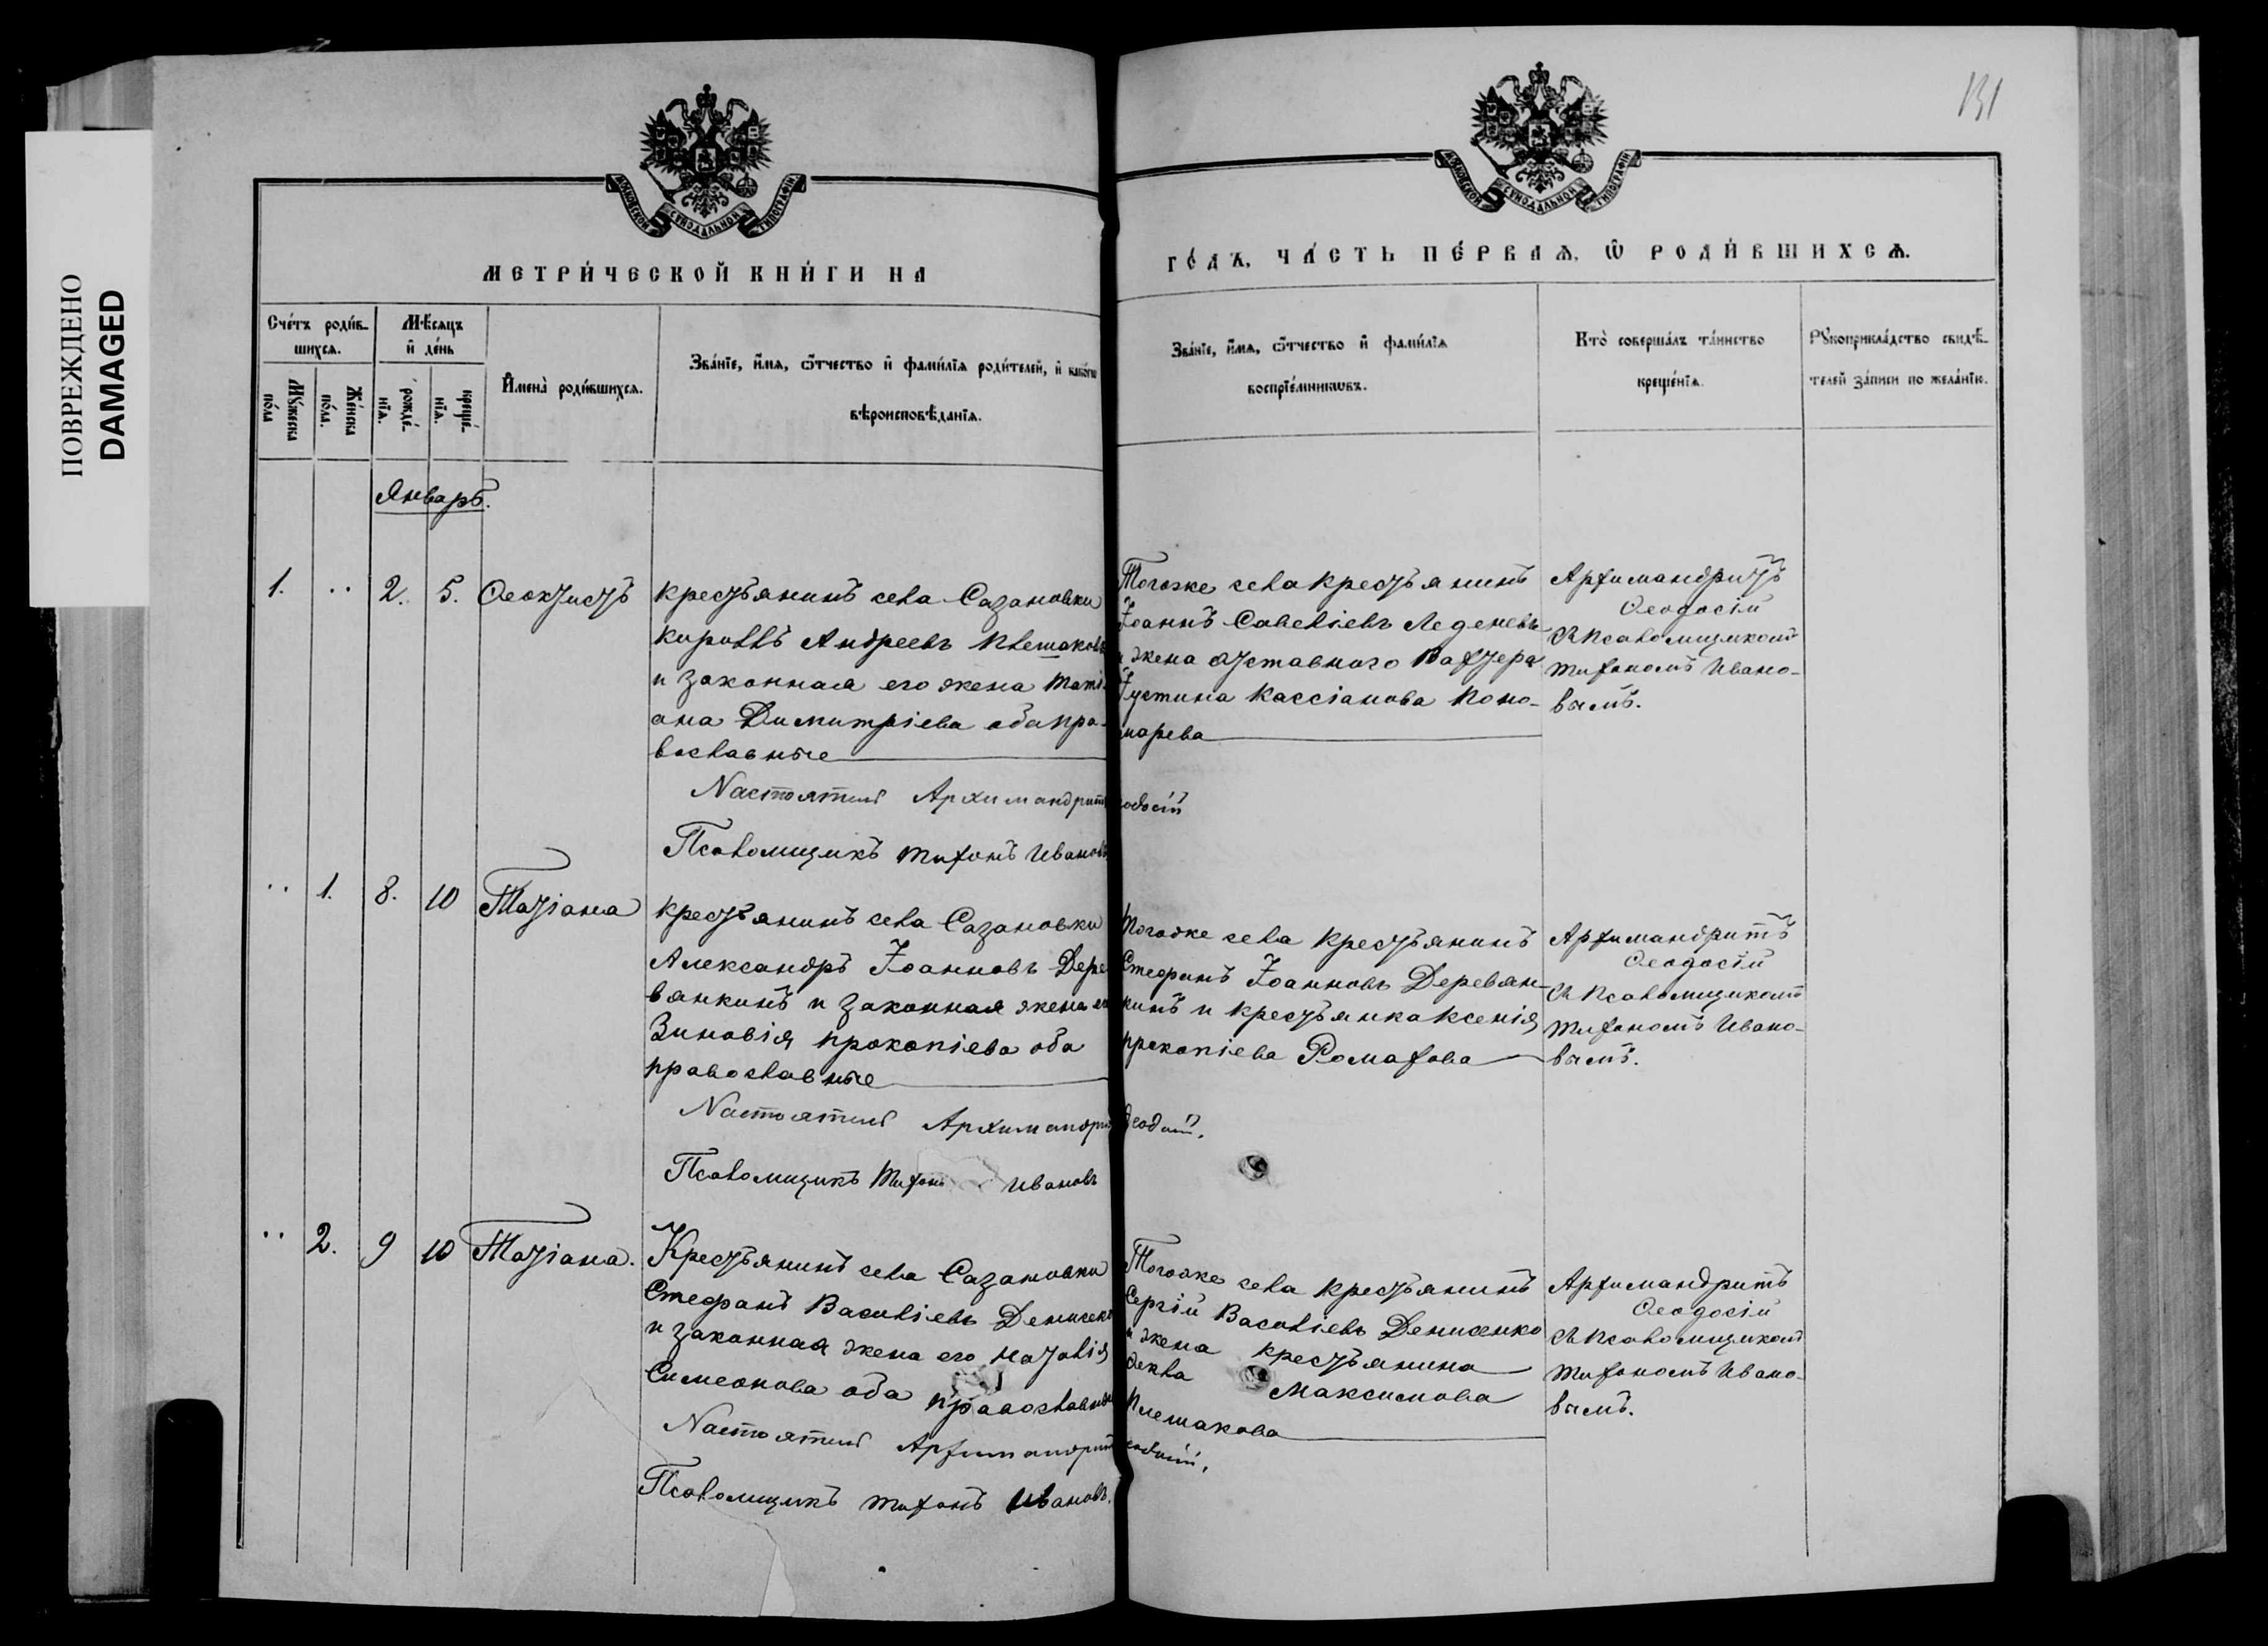 ПОВРЕЖДЕНО
DAMAGED
131
МОСКОВСКОЙ СУНОДАЛЬНОЙ ТИПОГРАФІИ
МОСКОВСКОЙ СУНОДАЛЬНОЙ ТИПОГРАФІИ
МЕТРИ́ЧЕСКОЙ КНИ́ГИ НА
ГО́ДЪ, ЧА́СТЬ ПЕ́РВАѦ, Ѡ҆ РОДИ́ВШИХСѦ.
Сче́тъ роди́в-
шихсѧ.
Мꙋ́жеска по́ла
Же́нска по́ла.
Мѣ́сѧцъ
и҆ де́нь
рожде́-
нїѧ.
креще́-
нїѧ.
И҆мена̀ роди́вшихсѧ.
Зва́нїе, и҆́мѧ, ѻ҆́тчество и҆ фами́лїѧ роди́телей, и҆ како́гѡ
вѣроисповѣ́данїѧ.
Зва́нїе, и҆́мѧ, ѻ҆́тчество и҆ фами́лїѧ
воспрїе́мникѡвъ.
Кто̀ соверша́лъ та́инство
креще́нїѧ.
Рꙋкоприкла́дство свидѣ́-
телей за́писи по жела́нїю.
Январь.
1. .. 2. 5. Ѳеоктистъ
крестьянинъ села Сазановки
Кириллъ Андреевъ Плешаковъ
и законная его жена Тати-
ана Димитріева оба пра-
вославные
Тогоже села крестьянинъ
Іоаннъ Савеліевъ Леденевъ
и жена отставного Вахтера
Іустина Кассіанова Поно-
марева
Архимандритъ
Ѳеодосій
съ Псаломщикомъ
Тихономъ Ивано-
вымъ.
Настоятель Архимандритъ Ѳеодосій
Псаломщикъ Тихонъ Ивановъ
.. 1. 8. 10 Татіана
крестьянинъ села Сазановки
Александръ Іоанновъ Дере-
вянкинъ и законная жена его
Зиновія Прокопіева оба
православные
Тогоже села крестьянинъ
Стефанъ Іоанновъ Деревян-
кинъ и крестьянка Ксенія
Прокопіева Ромахова
Архимандритъ
Ѳеодосій
съ Псаломщикомъ
Тихономъ Ивано-
вымъ.
Настоятель Архимандритъ Ѳеодосій.
Псаломщикъ Тихонъ Ивановъ
.. 2. 9 10 Татіана.
Крестьянинъ села Сазановки
Стефанъ Василіевъ Денисенко
и законная жена его Наталія
Симеонова оба православные
Тогоже села крестьянинъ
Сергій Василіевъ Денисенко
и жена крестьянина
Ѳекла Максимова
Плешакова
Архимандритъ
Ѳеодосій
съ Псаломщикомъ
Тихономъ Ивано-
вымъ.
Настоятель Архимандритъ Ѳеодосій.
Псаломщикъ Тихонъ Ивановъ.